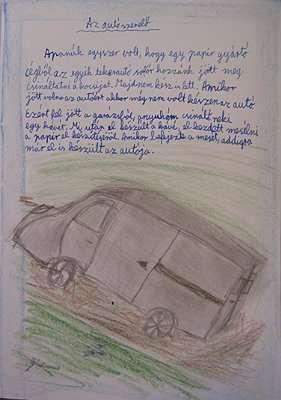 Az autószerelő
Apanak egyszer volt, hogy egy papír gyártó
cégből az egyik teherautó sofőr hozzánk jött meg
csináltatni a kocsiját. Majdnem kész is lett. Amikor
jött volna az autóért akkor még nem volt készen az autó.
Ezért fel jött a garázsból, anyukám csinált neki
egy kávét. Mi, után el készült a kávé, el kezdett mesélni
a papír el készítéséről. Amikor befejezte a mesét, addigra
már el is készült az autója.